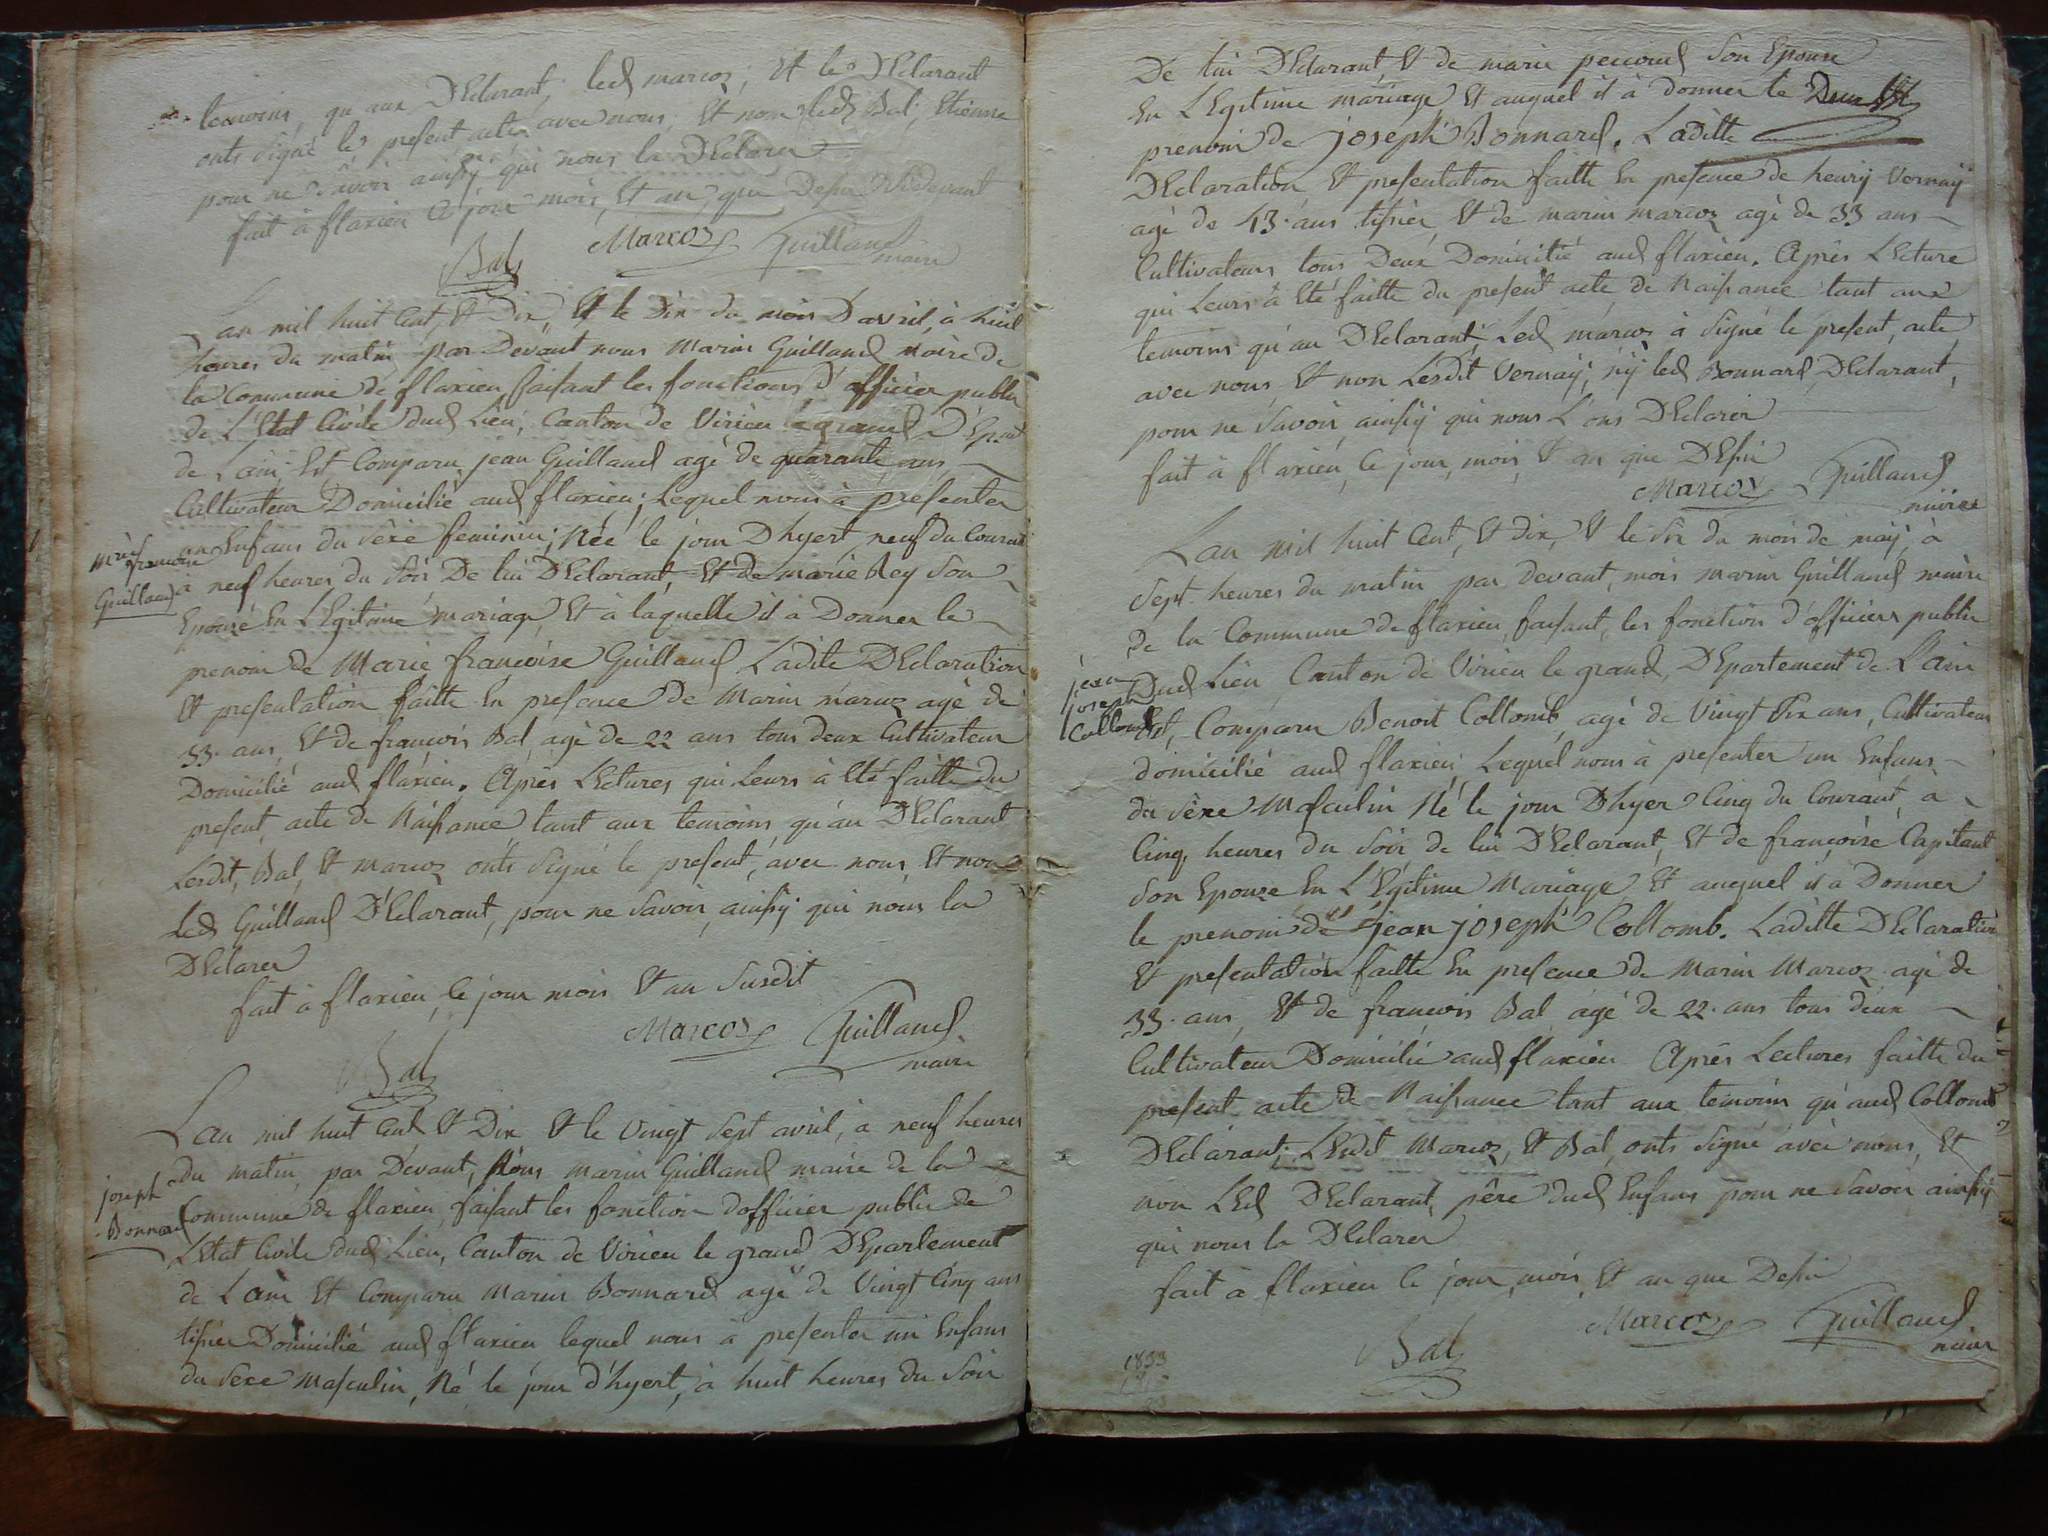 temoins, qu'aux Déclarant, led marcoz, Et le Déclarant
onts signé le present acte avec nous, Et non led Bal, Etienne
pour ne savoir ainsÿ qui nous la Déclarer
fait à flaxieu Ce jour mois, Et an, que Desu Cidevant
Bal Marcoz Guilland
maire
L'an mil huit Cent, Et Dix, Et le Dix du mois Davril, à huit
heures du matin, par Dévant nous Marin Guilland maire de
la Commune de flaxieu faisant les fonctions d'officier public
de L'Etat Civile dud Lieu, Canton de Virieu le grand, D'Epart
de Lain, Est Comparu jean Guilland agé de quarante ans
Cultivateur Domicilié aud flaxieu; Lequel nous à presenter
un Enfans du sèxe feminin; Née le jour Dhyert neuf du Courant
marie
francoise
Guilland
à neuf heures du Soir De lui Déclarant, Et de marie Rey son
Epouse En LEgitime mariage, Et à laquelle il à Donner le
prenom de Marie françoise Guilland Ladite Déclaration
Et presentation faitte En presence De Marin marcoz agé de
33. ans, Et de francois Bal, agé de 22 ans tous deux Cultivateur
Domicilié aud flaxieu. Après LEctures qui Leurs à Eté faitte du
present, acte de Naissance tant aux temoins, qu'au Déclarant
Lesdit, Bal, Et marcoz onts signé le present, avec nous, Et non
Led Guilland D'Eclarant, pour ne savoir, ainsÿ qui nous la
DEclarer
fait à flaxieu, Ce jour mois Et an Susdit
Bal Marcoz Guilland
maire
L'an mil huit Cent Et Dix Et le Vingt Sept avril, à neuf heures
du matin, par Dévant, Nous Marin Guilland maire de la
joseph
Bonnard
Commune de flaxieu, faisant les fonction dofficier public de
LEtat Civile dud Lieu, Canton de Virieu le grand DEpartement
de Lain Et Comparu Marin Bonnard agé de Vingt Cinq ans
tissier Domicilié aud flaxieu lequel nous à presenter un Enfans
du sexe masculin, Né le jour d'hyert, à huit heures du Soir
De lui DEclarant, Et de marie peucoud son Epouse
En LEgitime mariage Et auquel il à donner le
prenom de joseph Bonnard. Laditte
DEclaration Et presentation faitte En presence de henrij Vernaÿ
agé de 43. ans tissier Et de marin marcoz agé de 33 ans
Cultivateurs tous Deux Domicilié aud flaxieu. Après LEcture
qui Leurs à Eté faitte du present acte de Naissance tant aux
temoins qu'au DEclarant, Led marcoz à signé le present, acte
avec nous, Et non Lesdit Vernaÿ, nÿ led Bonnard DEclarant,
pour ne savoir, ainsÿ qui nous L'ons DEclarer
fait à flaxieu, Ce jour, mois, Et an que DEsu
Marcoz Guilland
maire
L'an mil huit Cent, Et dix, Et le Six du mois de maÿ, à
Sept heures du matin par devant, mois marin Guilland maire
de la Commune de flaxieu, faisant, les fonction d'officiers public
jean
joseph
Collomb
Dud Lieu, Canton de Virieu le grand, DEpartement de L'ain
Est, Comparu Benoit Collomb, agé de Vingt Six ans, Cultivateur
domicilié aud flaxieu, Lequel nous à presenter un Enfans
du sèxe Masculin Né le jour Dhyer Cinq du Courant, à
Cinq, heures du Soir de lui D'Eclarant, Et de françoise Capitant
Son Epouse En L'Egitime Mariage, Et auquel il a Donner
le prenom de jean joseph Collomb. Laditte DEclaration
Et presentation faitte En presence de Marin Marcoz agé de
33. ans, Et de francois Bal agé de 22. ans tous deux
Cultivateur Domicilié aud flaxieu Après Lectures faitte du
present, acte de Naissance tant aux temoins qu'aud Collomb
DEclarant, LEsdit Marcoz, Et Bal, onts signé avéc nous, Et
non LEd DEclarant, père dud Enfans pour ne Savoir ainsÿ
qui nous la DEclarer
fait à flaxieu Ce jour, mois, Et an que Desu
Bal Marcoz Guilland
maire
1833